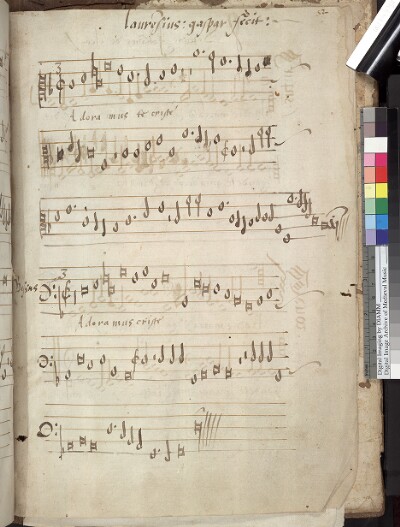 Lauresius: gaspar fecit:
3
Adora mus te criste
Bassus
3
Adora mus criste
Digital Imaging by DIAMM
Digital Image Archive of Medieval Music